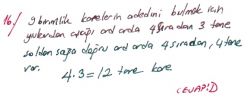 16) 9 birimlik karelerin adedini bulmak için
yukarıdan aşağı ard arda 4 sıradan 3 tane
soldan sağa doğru ard arda 4 sıradan, 4 tane
var.
4.3=12 tane kare
CEVAP:D